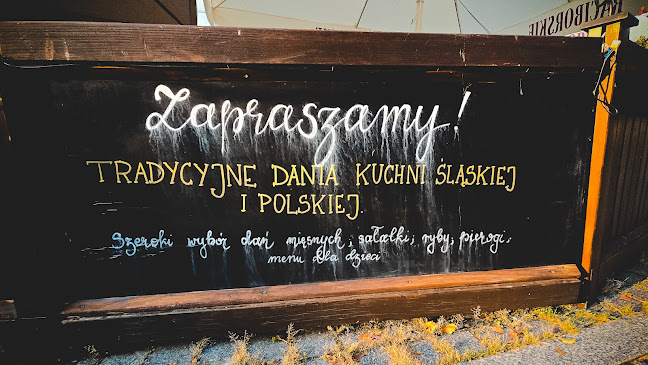 RACIBORSKIE
Zapraszamy!
TRADYCYJNE DANIA KUCHNI ŚLĄSKIEJ
I POLSKIEJ.
Szeroki wybór dań mięsnych, sałatki, ryby, pierogi,
menu dla dzieci